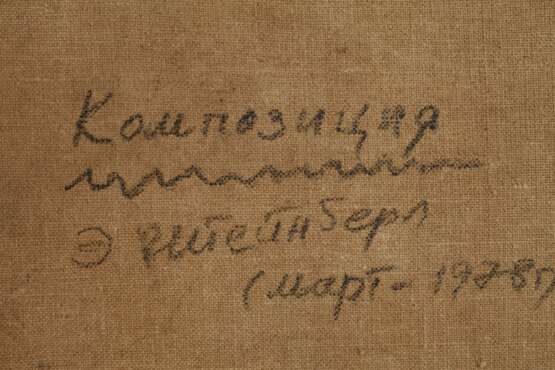 Композиция
Э Штейнберг
(март - 1978г